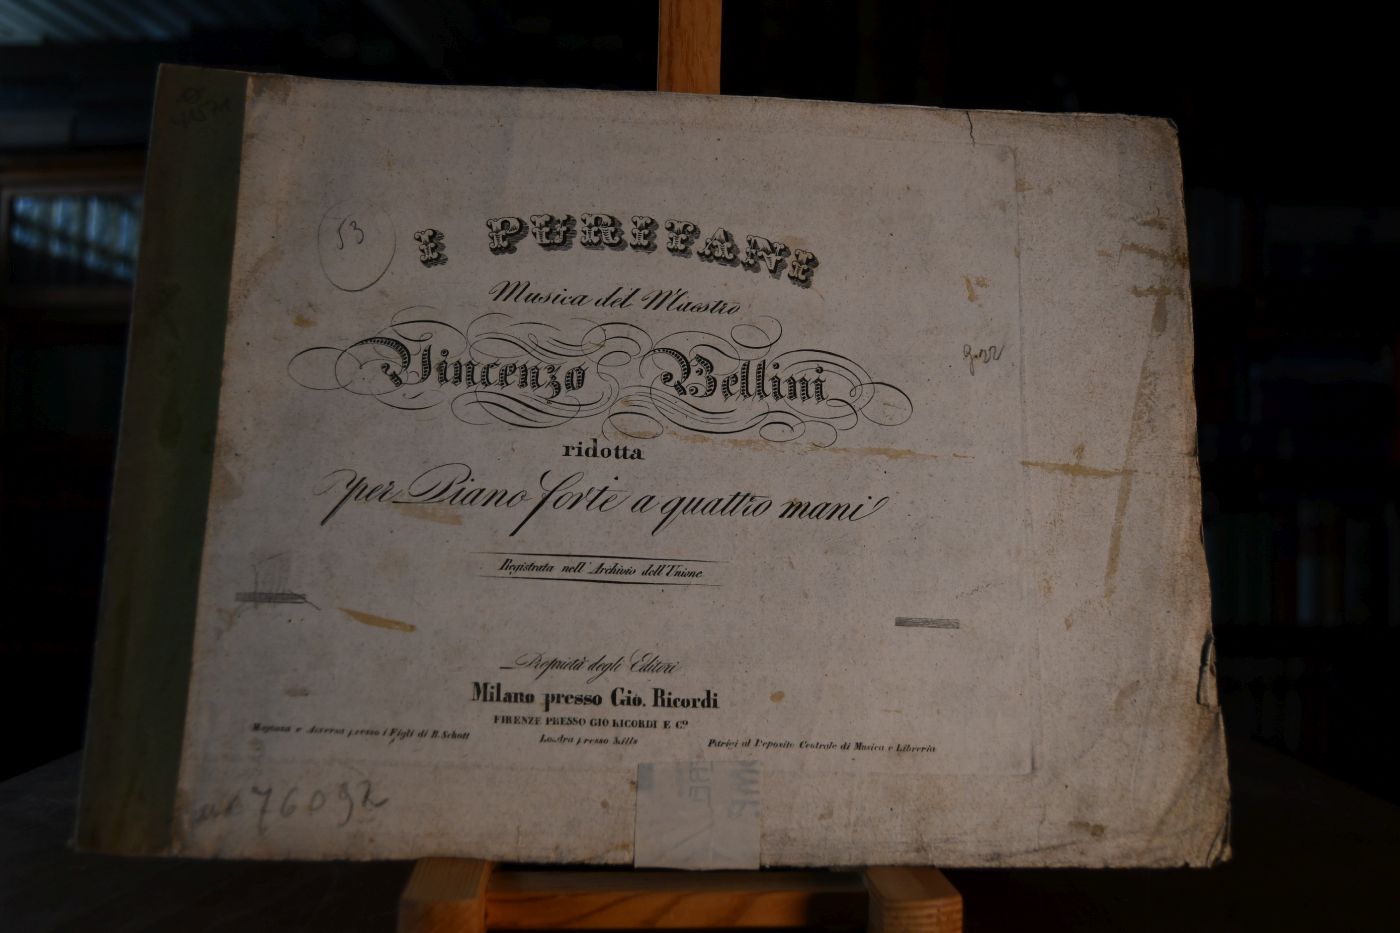 53
I PURITANI
Musica del Maestro
Vincenzo Bellini
ridotta
per Piano forte a quattro mani
Registrata nell' Archivio dell' Unione
Proprietà degli Editori
Milano presso Gio. Ricordi
FIRENZE PRESSO GIO RICORDI E Cº
Magonza e Anversa presso i Figli di B. Schott
Londra presso Mills
Parigi al Deposito Centrale di Musica e Libreria
76092